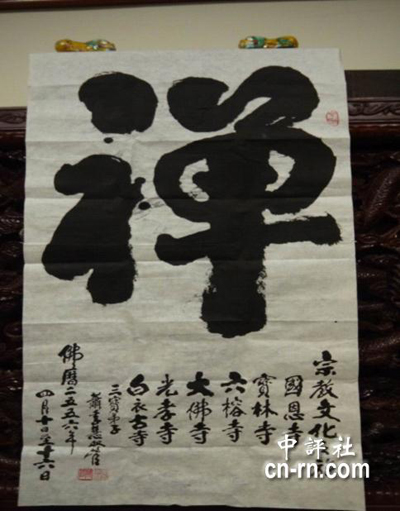 禅
宗教文化之旅
國恩寺
寶林寺
六榕寺
大佛寺
光孝寺
白衣古寺
三寶弟子
佛曆二五五六年
四月十日至十六日
中評社
cn-rn.com